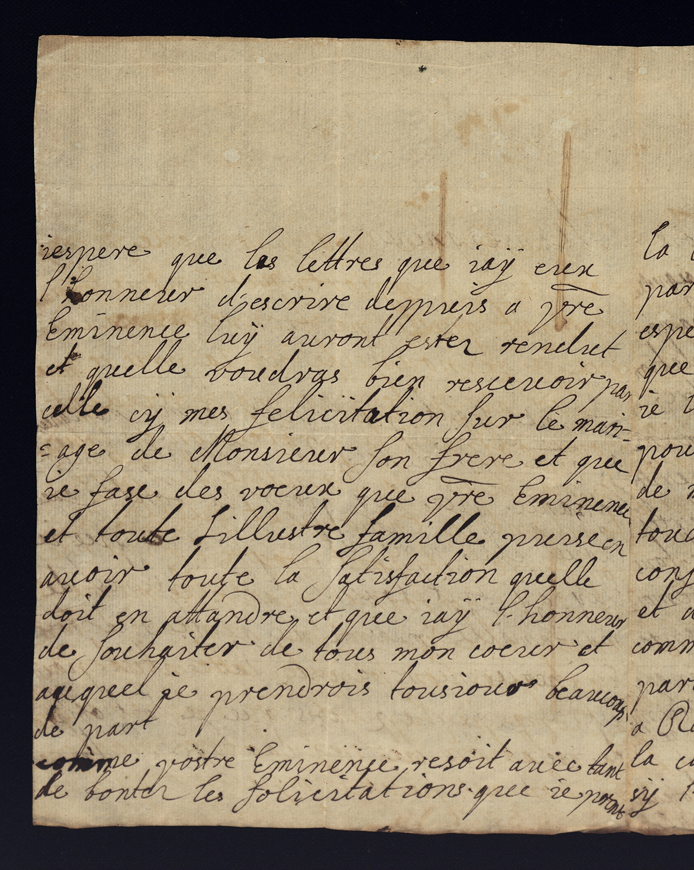 iespere que les lettres que iaÿ eux
l'honneur d'escrire deppuis a vre
Eminence luÿ auront estez rendut
et quelle voudras bien rescevoir par
celle cÿ mes felicitation sur le mari=
=age de Monsieur son frere et que
ie fase des voeux que vre Eminence
et toute Lillustre famille puisse en
avoir toute la satisfaction quelle
doit en attandre et que iaÿ l'honneur
de souhaiter de tous mon coeur et
auquel ie prendrois tousiour beaucoup
de part
comme vostre Eminence resoit avec tant
de bontez les solicitations que ie
la
par
espe
que
ie
pour
de
touc
cons
et
comm
par
a
la
sÿ